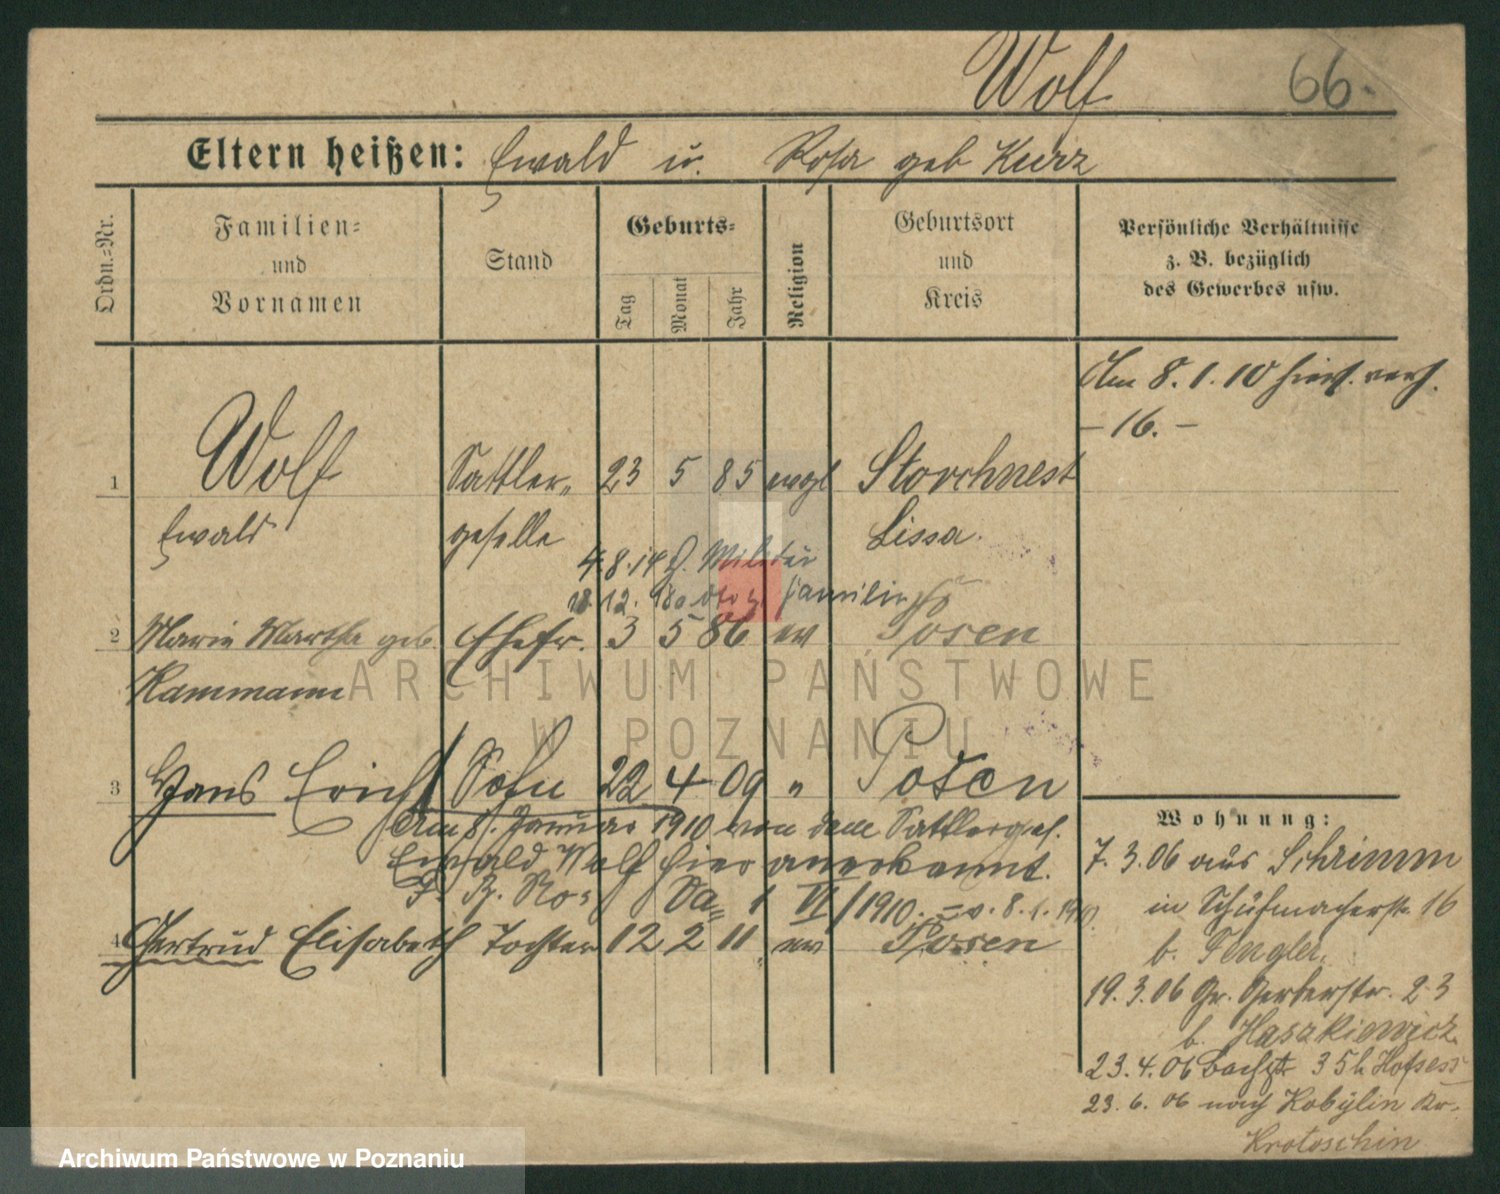 Wolf 66.
Eltern heißen: Ewald u. Rosa geb Kurz
Ordn.=Nr.
Familien=
und
Vornamen
Stand
Geburts=
Tag
Monat
Jahr
Religion
Geburtsort
und
Kreis
Persönliche Verhältnisse
z. B. bezüglich
des Gewerbes usw.
Am 8.1.10 hier verh.
– 16. –
1 Wolf Sattler= 23 5 85 evgl Storchnest
Ewald geselle Lissa
4.8.14 z. Militär
18.12. Familie
2 Marie Martha geb. Ehefr. 3 5 86 ev Posen
Kammann
3 Hans Erich Sohn 22 4 09 " Posen
Am 8. Januar 1910 von dem Sattlerges.
Ewald Wolf hier anerkannt.
1 VI/1910. v. 8.1.1910
4 Gertrud Elisabeth Tochter 12 2 11 ev Posen
Wohnung:
7.3.06 aus Schrimm
in Schuhmacherstr 16
b. Tengler.
19.3.06 Gr. Gerberstr. 23
b. Haszkiewicz
23.4.06 Bachstr 35 b Hofsess
23.6.06 nach Kobylin Kr.
Krotoschin
ARCHIWUM PAŃSTWOWE
W POZNANIU
Archiwum Państwowe w Poznaniu